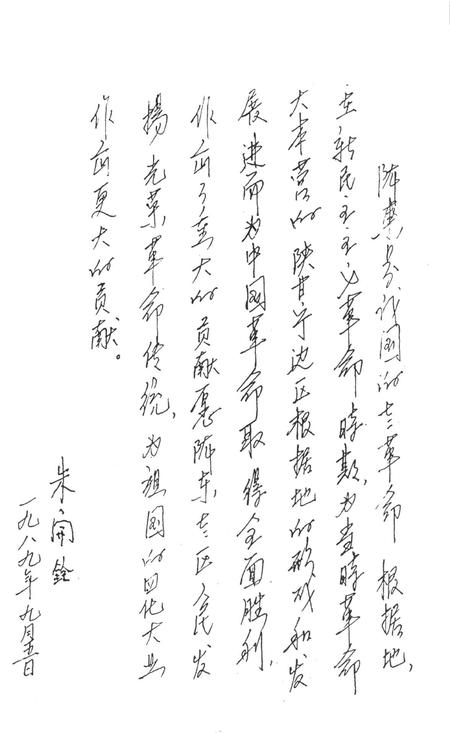 陇東是我国的老革命 根据地,
在新民主主义革命時期,为当時革命
大本营的陕甘宁边区根据地的形成和发
展进而为中国革命取得全面胜利,
作出了重大的贡献愿陇东老区人民发
揚光荣革命传统,为祖国的四化大业
作出更大的贡献。
朱開铨
一九八九年九月五日